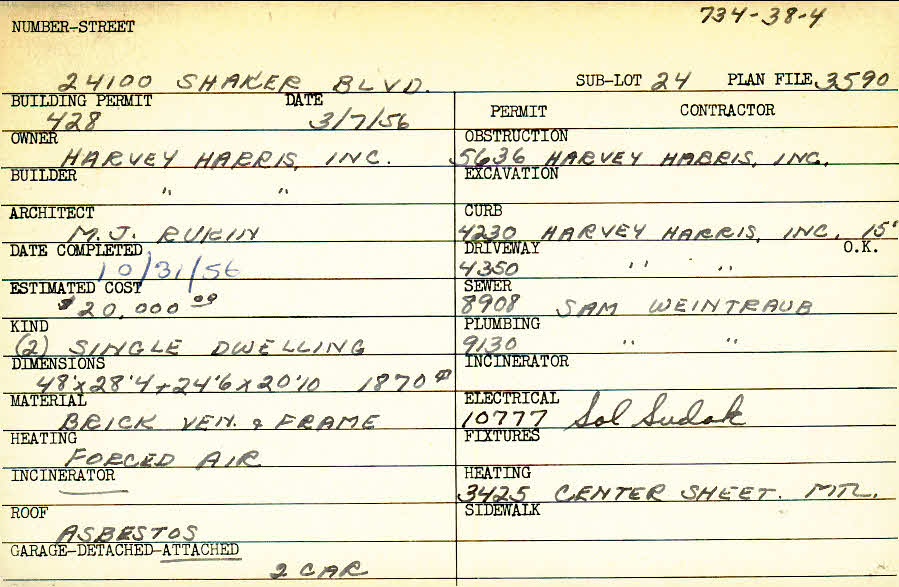 734-38-4
NUMBER-STREET
24100 SHAKER BLVD. SUB-LOT 24 PLAN FILE 3590
BUILDING PERMIT DATE
428 3/7/56
OWNER
HARVEY HARRIS, INC.
BUILDER
" "
ARCHITECT
M.J. RUKIN
DATE COMPLETED
10/31/56
ESTIMATED COST
$20,000 00
KIND
(2) SINGLE DWELLING
DIMENSIONS
48'x28'4+24'6x20'10 1870
MATERIAL
BRICK VEN. & FRAME
HEATING
FORCED AIR
INCINERATOR
ROOF
ASBESTOS
GARAGE-DETACHED-ATTACHED
2 CAR
PERMIT CONTRACTOR
OBSTRUCTION
5636 HARVEY HARRIS, INC.
EXCAVATION
CURB
4230 HARVEY HARRIS, INC. 15'
DRIVEWAY O.K.
4350 " "
SEWER
8908 SAM WEINTRAUB
PLUMBING
9130 " "
INCINERATOR
ELECTRICAL
10777 Sol Sudak
FIXTURES
HEATING
3425 CENTER SHEET. MTL.
SIDEWALK